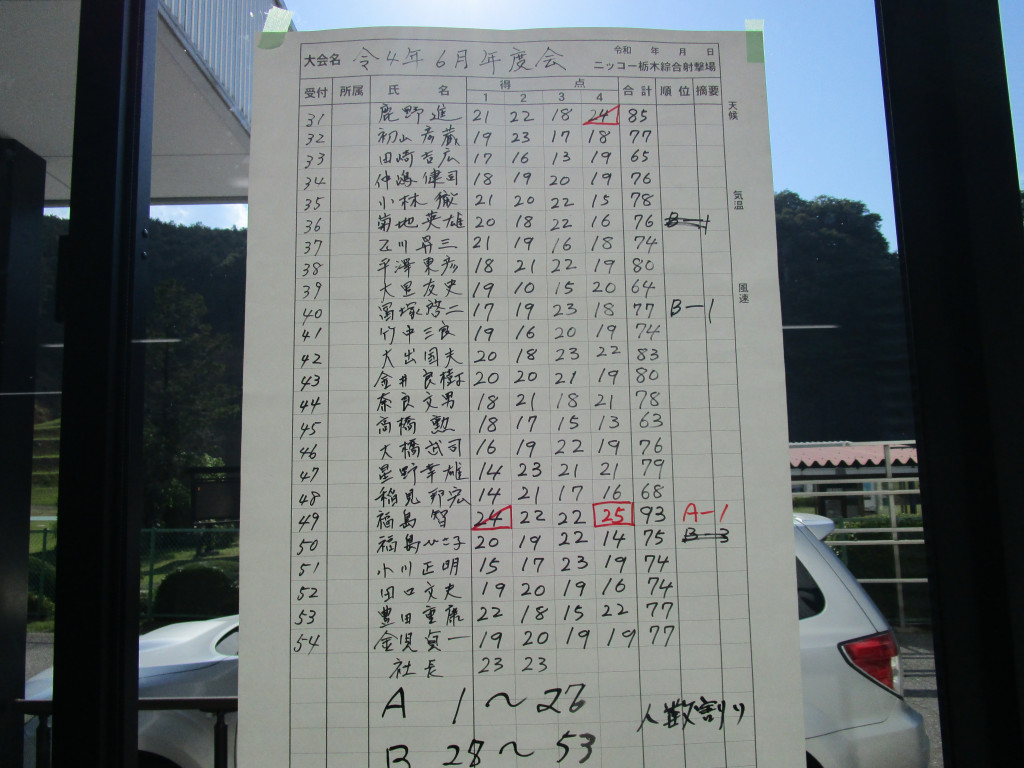 令和 年 月 日
大会名 令4年6月年度会 ニッコー栃木綜合射撃場
受付 所属 氏 名 得 点 合計 順位 摘要
1 2 3 4
31 鹿野進 21 22 18 24 85
32 初山彦蔵 19 23 17 18 77
33 田崎吉広 17 16 13 19 65
34 仲嶋健司 18 19 20 19 76
35 小林徹 21 20 22 15 78
36 菊地英雄 20 18 22 16 76 B-1
37 石川昇三 21 19 16 18 74
38 平澤東彦 18 21 22 19 80
39 大里友史 19 10 15 20 64
40 冨塚啓二 17 19 23 18 77 B-1
41 竹中三良 19 16 20 19 74
42 大出国夫 20 18 23 22 83
43 金井良樹 20 20 21 19 80
44 奈良文男 18 21 18 21 78
45 高橋勲 18 17 15 13 63
46 大橋武司 16 19 22 19 76
47 星野幸雄 14 23 21 21 79
48 稲見邦宏 14 21 17 16 68
49 福島智 24 22 22 25 93 A-1
50 福島心さ子 20 19 22 14 75 B-3
51 小川正明 15 17 23 19 74
52 田口文夫 19 20 19 16 74
53 豊田重康 22 18 15 22 77
54 金児貞一 19 20 19 19 77
社長 23 23
A 1〜27
人数割り
B 28〜53
天候
気温
風速